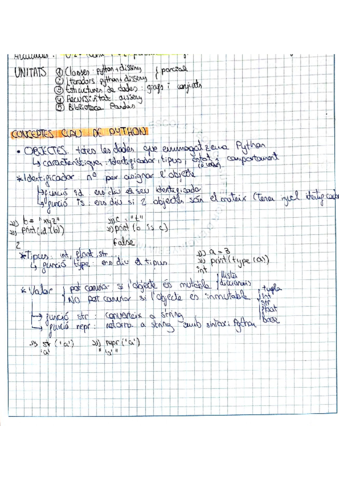 UNITATS ① Classes Python i disseny } parcial
② Iteradors python i disseny
③ Estructures de dades: grafs i conjunts
④ Recursivitat disseny
⑤ Biblioteca Pandas
CONCEPTES CLAU DE PYTHON
• OBJECTES: totes les dades que emmagatzema Python
↳ característiques: identificador, tipus, estat i comportament
(valor)
* Identificador: nº per assignar l'objecte
funció id ens diu el seu identificador
funció is ens diu si 2 objectes són el mateix (tenen igual identificador)
>> b = "xyz" >> c = "t"
>> print(id(b)) >> print(b is c)
2 False
* Tipus: int, float, str >> a = 3
↳ funció type ens diu el tipus >> print(type(a))
int
* Valor { pot canviar si l'objecte és mutable { llista diccionaris
NO pot canviar si l'objecte és inmutable { tupla int str float
↳ funció str: converteix a string
↳ funció repr: retorna a string amb sintaxi Python
>> str('a') >> repr('a')
'a' "'a'"